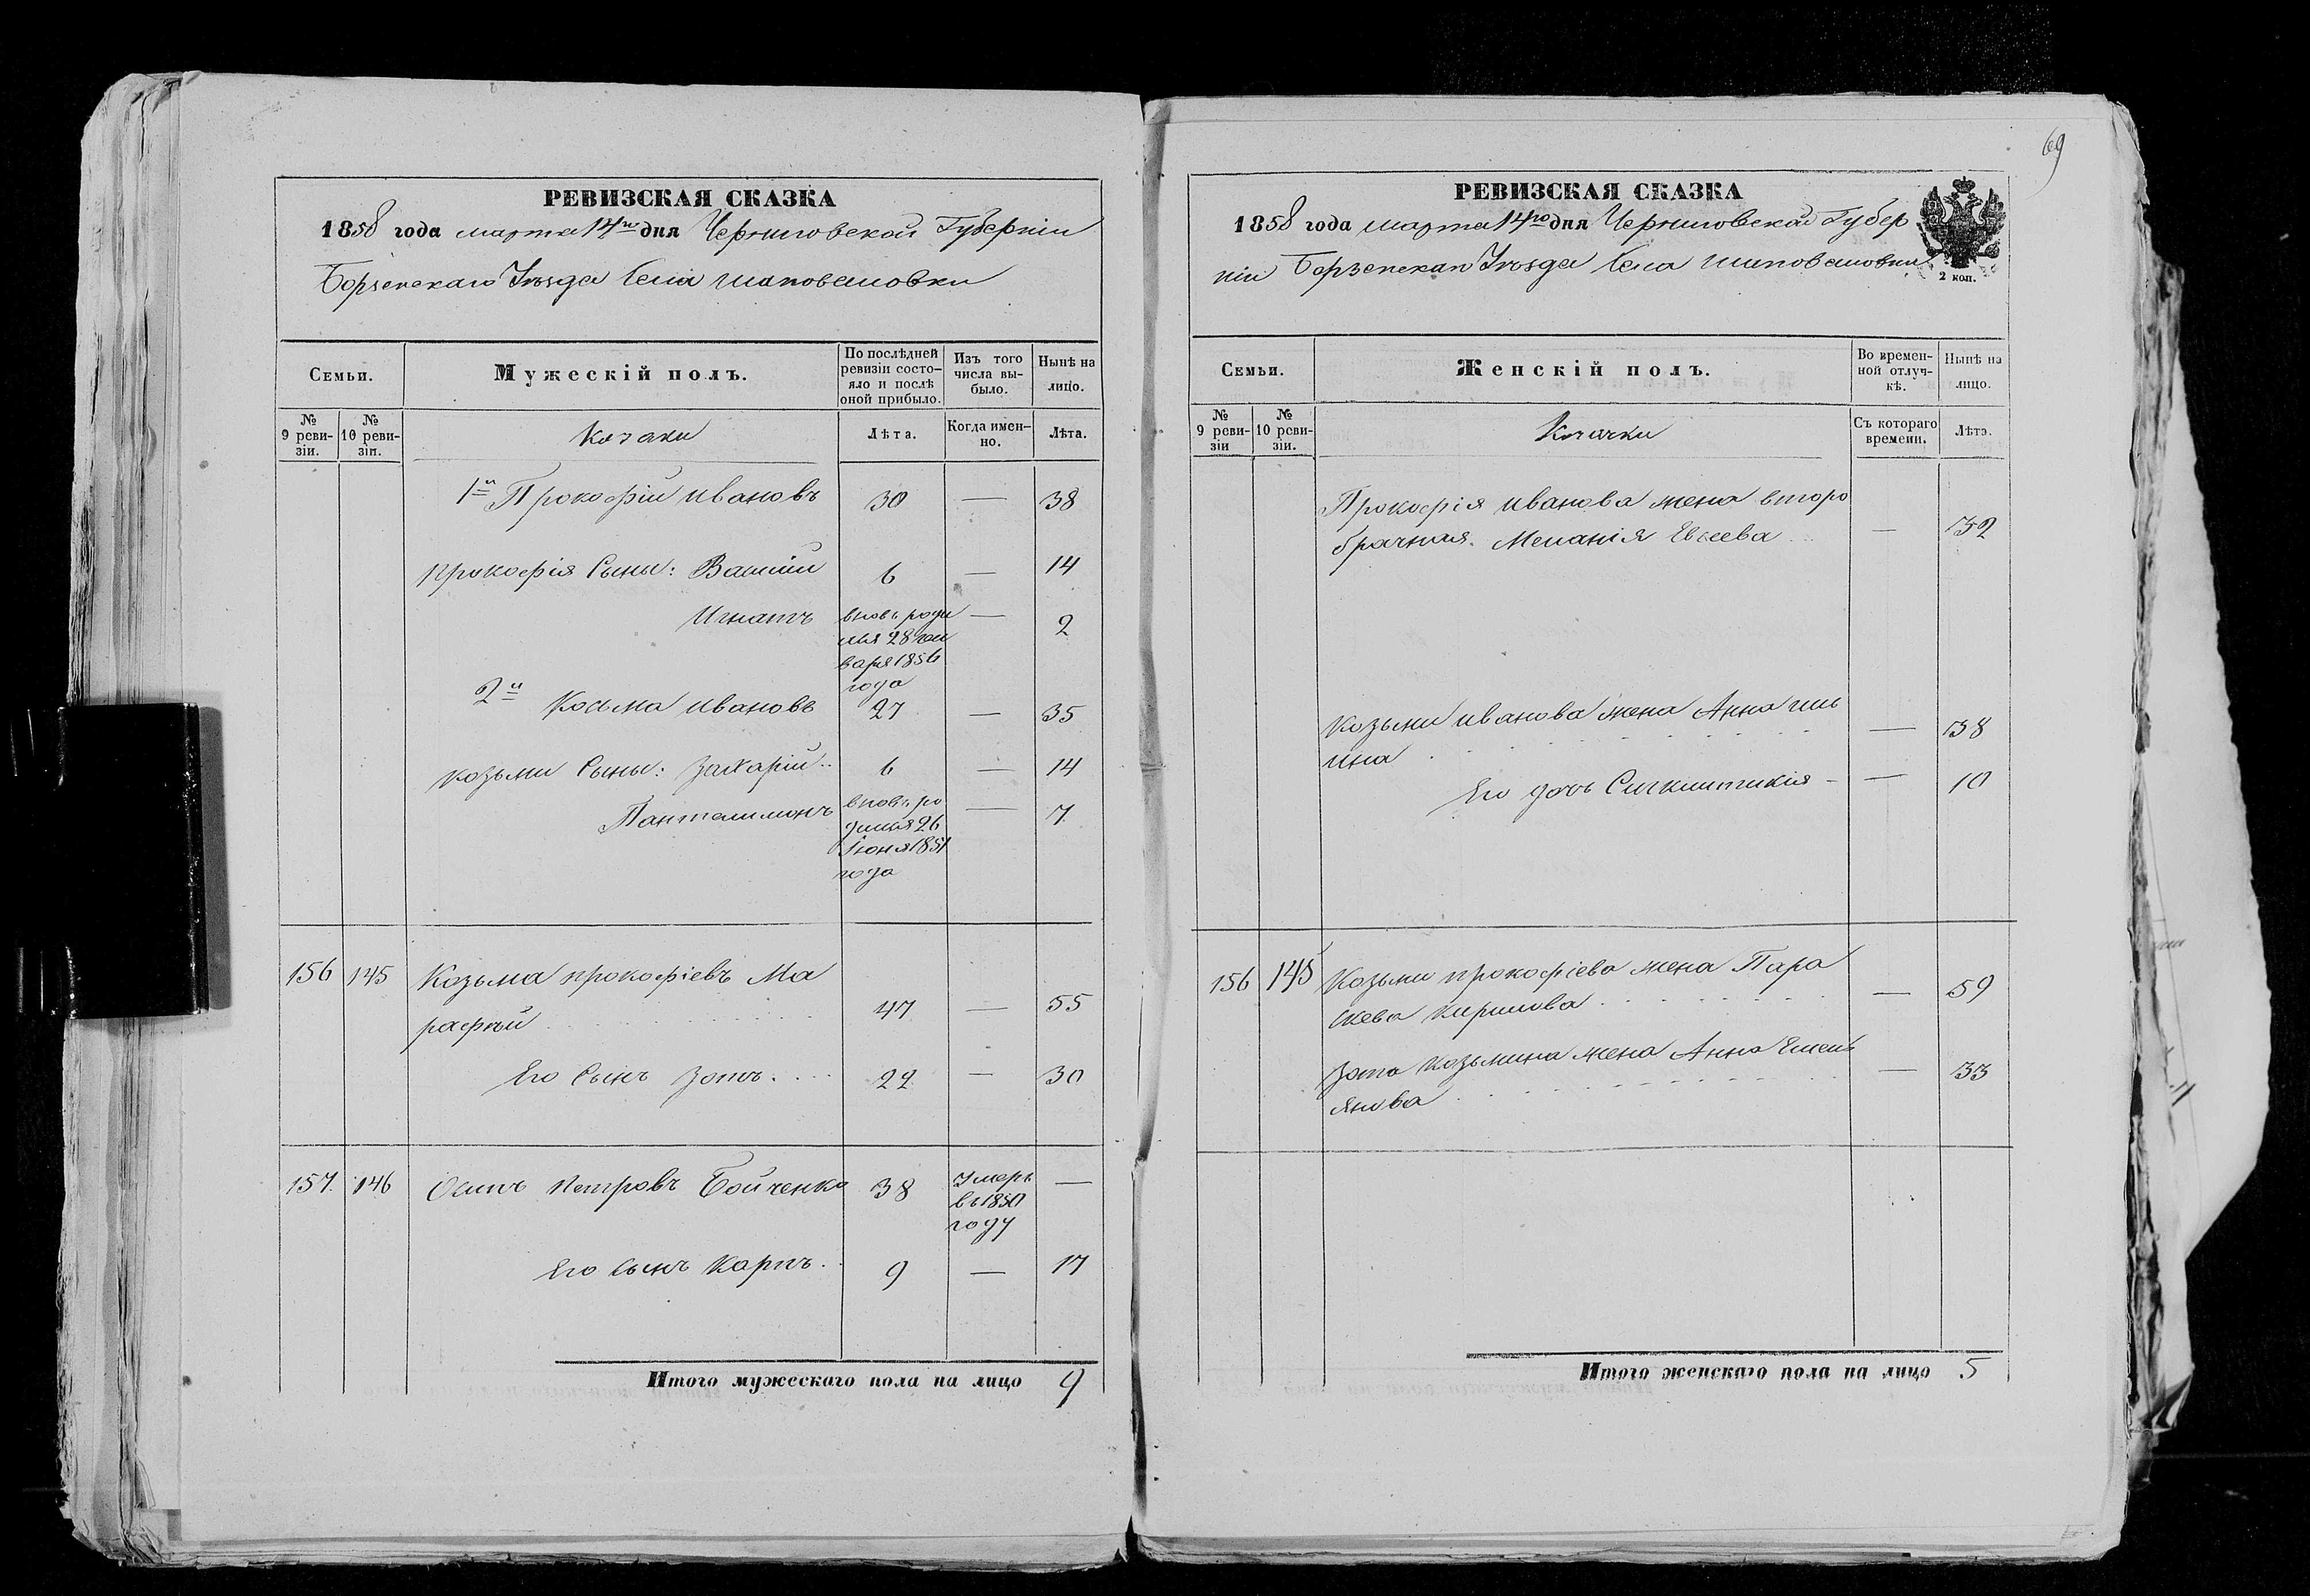 РЕВИЗСКАЯ СКАЗКА
1858 года марта 14го дня Черниговской Губерніи
Борзенскаго Уѣзда Села Шаповаловки
Семьи.
Мужескій полъ.
По послѣдней ревизіи состояло и послѣ оной прибыло.
Изъ того числа выбыло.
Нынѣ на лицо.
№ 9 ревизіи.
№ 10 ревизіи.
Козаки
Лѣта.
Когда именно.
Лѣта.
1й Прокофій Ивановъ 30 — 38
Прокофія Сыны: Василій 6 — 14
Игнатъ вновь роди — 2
лся 28 Ген
варя 1856
года
2й Козьма Ивановъ 27 — 35
Козьми Сыны: Захарій .. 6 — 14
Пантелимонъ вновь ро — 7
дился 26
Іюня 1851
года
156 145 Козьма Прокофіевъ Ма
рафѣй 47 — 55
Его Сынъ Зотъ .... 22 — 30
157. 146 Осипъ Петровъ Бойченко 38 Умеръ —
въ 1850
году
Его сынъ Карпъ .. 9 — 17
Итого мужескаго пола на лицо 9
69
РЕВИЗСКАЯ СКАЗКА
1858 года марта 14го дня Черниговской Губер
ніи Борзенскаго Уѣзда Села Шаповаловки
2 коп.
Семьи.
Женскій полъ.
Во временной отлучкѣ.
Нынѣ на лицо.
№ 9 ревизіи
№ 10 ревизіи.
Козачки
Съ котораго времени.
Лѣта.
Прокофія Иванова жена второ
брачная Меланія Евсеева — 32
Козьми Иванова жена Анна Иль
ина — 38
Его дочь — 10
156 145 Козьми Прокофіева жена Пара
скева Кирилова — 59
Зота Козьмина жена Анна Емель
янова — 33
Итого женскаго пола на лицо 5